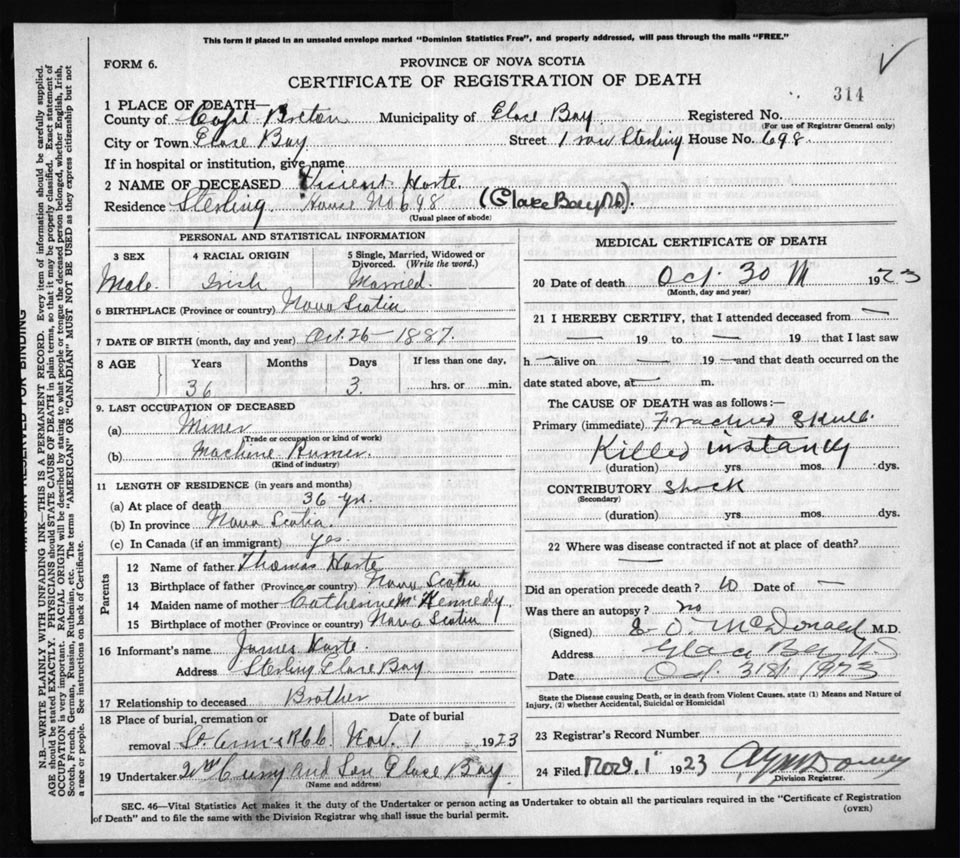 This form if placed in an unsealed envelope marked "Dominion Statistics Free", and properly addressed, will pass through the mails "FREE."
FORM 6.
PROVINCE OF NOVA SCOTIA
CERTIFICATE OF REGISTRATION OF DEATH
314
1 PLACE OF DEATH—
County of Cape Breton Municipality of Glace Bay Registered No.
(For use of Registrar General only)
City or Town Glace Bay Street 1 row Sterling House No. 698
If in hospital or institution, give name
2 NAME OF DECEASED Vincent Harte.
Residence Sterling House No 698 (Glace Bay NS).
(Usual place of abode)
PERSONAL AND STATISTICAL INFORMATION
3 SEX 4 RACIAL ORIGIN 5 Single, Married, Widowed or Divorced. (Write the word.)
Male. Irish Married.
6 BIRTHPLACE (Province or country) Nova Scotia
7 DATE OF BIRTH (month, day and year) Oct. 26 - 1887.
8 AGE Years Months Days If less than one day,
36 3. hrs. or min.
9. LAST OCCUPATION OF DECEASED
(a) Miner
(Trade or occupation or kind of work)
(b) Machine Runner.
(Kind of industry)
11 LENGTH OF RESIDENCE (in years and months)
(a) At place of death 36 yr.
(b) In province Nova Scotia.
(c) In Canada (if an immigrant) yes.
Parents
12 Name of father Thomas Harte
13 Birthplace of father (Province or country) Nova Scotia
14 Maiden name of mother Catherine Mc Kennedy.
15 Birthplace of mother (Province or country) Nova Scotia
16 Informant's name James Harte.
Address Sterling Glace Bay
17 Relationship to deceased Brother
18 Place of burial, cremation or removal Date of burial
St. Ann's Nov. 1 1923
19 Undertaker and Son Glace Bay
(Name and address)
MEDICAL CERTIFICATE OF DEATH
20 Date of death Oct. 30 1923
(Month, day and year)
21 I HEREBY CERTIFY, that I attended deceased from —
— 19 to — 19 that I last saw
h — alive on — 19 — and that death occurred on the
date stated above, at — m.
The CAUSE OF DEATH was as follows :—
Primary (immediate) Skull.
Killed instantly
(duration) yrs. mos. dys.
CONTRIBUTORY Shock
(Secondary)
(duration) yrs. mos. dys.
22 Where was disease contracted if not at place of death?
—
Did an operation precede death? no Date of —
Was there an autopsy? no
(Signed) McDonald M.D.
Address Glace Bay N.S.
Date Oct. 31st 1923
State the Disease causing Death, or in death from Violent Causes, state (1) Means and Nature of
Injury, (2) whether Accidental, Suicidal or Homicidal
23 Registrar's Record Number
24 Filed Nov. 1 1923
Division Registrar.
SEC. 46—Vital Statistics Act makes it the duty of the Undertaker or person acting as Undertaker to obtain all the particulars required in the "Certificate of Registration
of Death" and to file the same with the Division Registrar who shall issue the burial permit.
(OVER)
MARGIN RESERVED FOR BINDING
N.B.—WRITE PLAINLY WITH UNFADING INK—THIS IS A PERMANENT RECORD. Every item of information should be carefully supplied.
AGE should be stated EXACTLY. PHYSICIANS should STATE CAUSE OF DEATH in plain terms, so that it may be properly classified. Exact statement of
OCCUPATION is very important. RACIAL ORIGIN will be described by stating to what people or tongue the deceased person belonged, whether English, Irish,
Scotch, French, German, Russian, Ruthenian, etc. The terms "AMERICAN" OR "CANADIAN" MUST NOT BE USED as they express citizenship but not
a race or people. See instructions on back of Certificate.